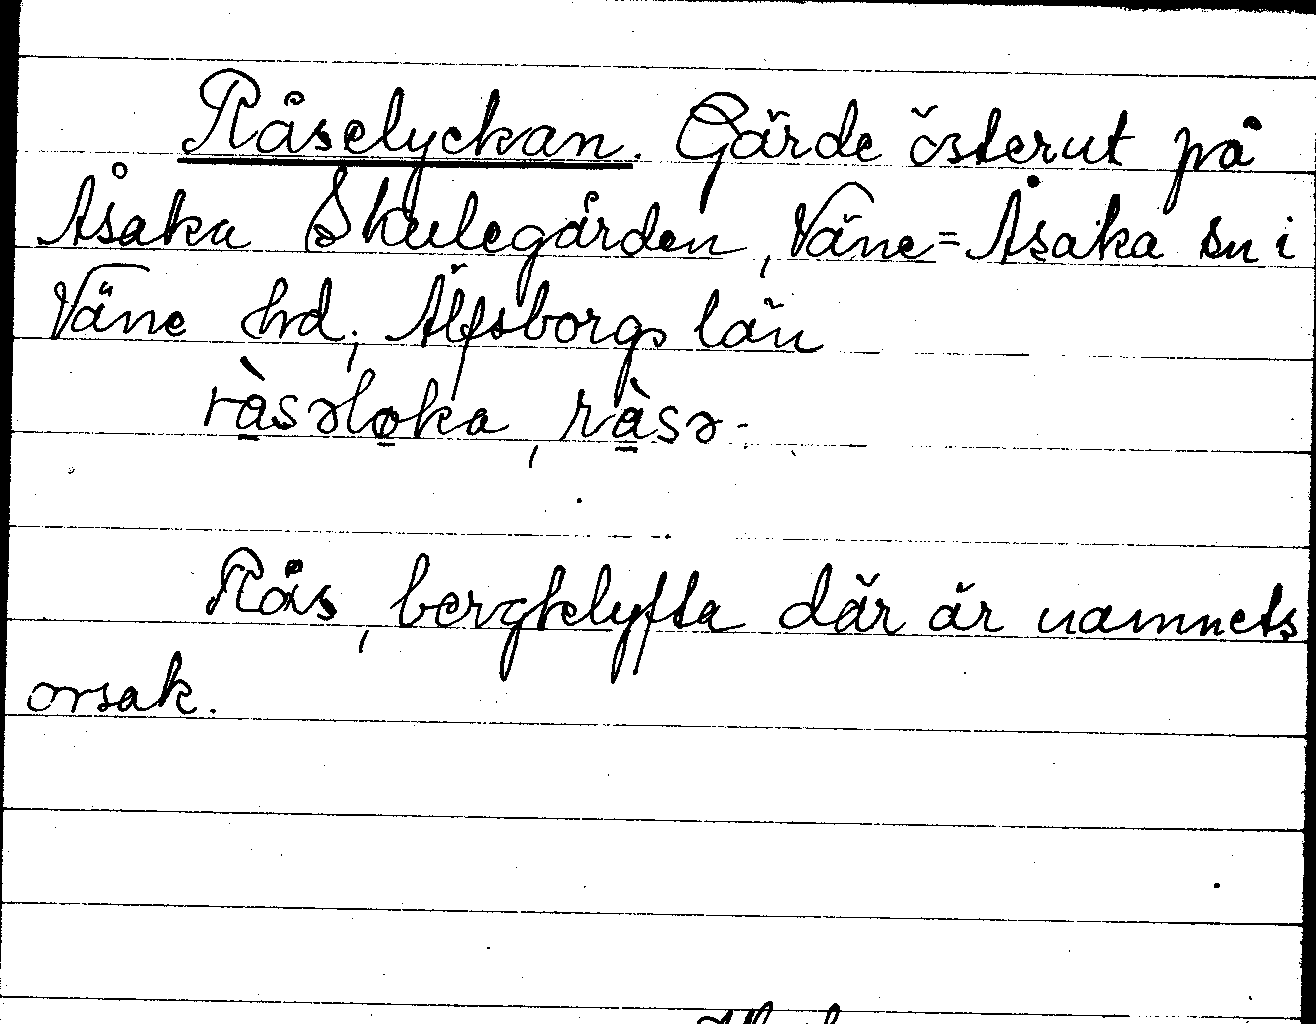 Råselyckan. Gärde österut på
Åsaka Skulegården, Väne=Åsaka sn i
Väne hd, Älfsborgs län
ràsəlo̠ka, ràsə-
Rås, bergklyfta där är namnets
orsak.